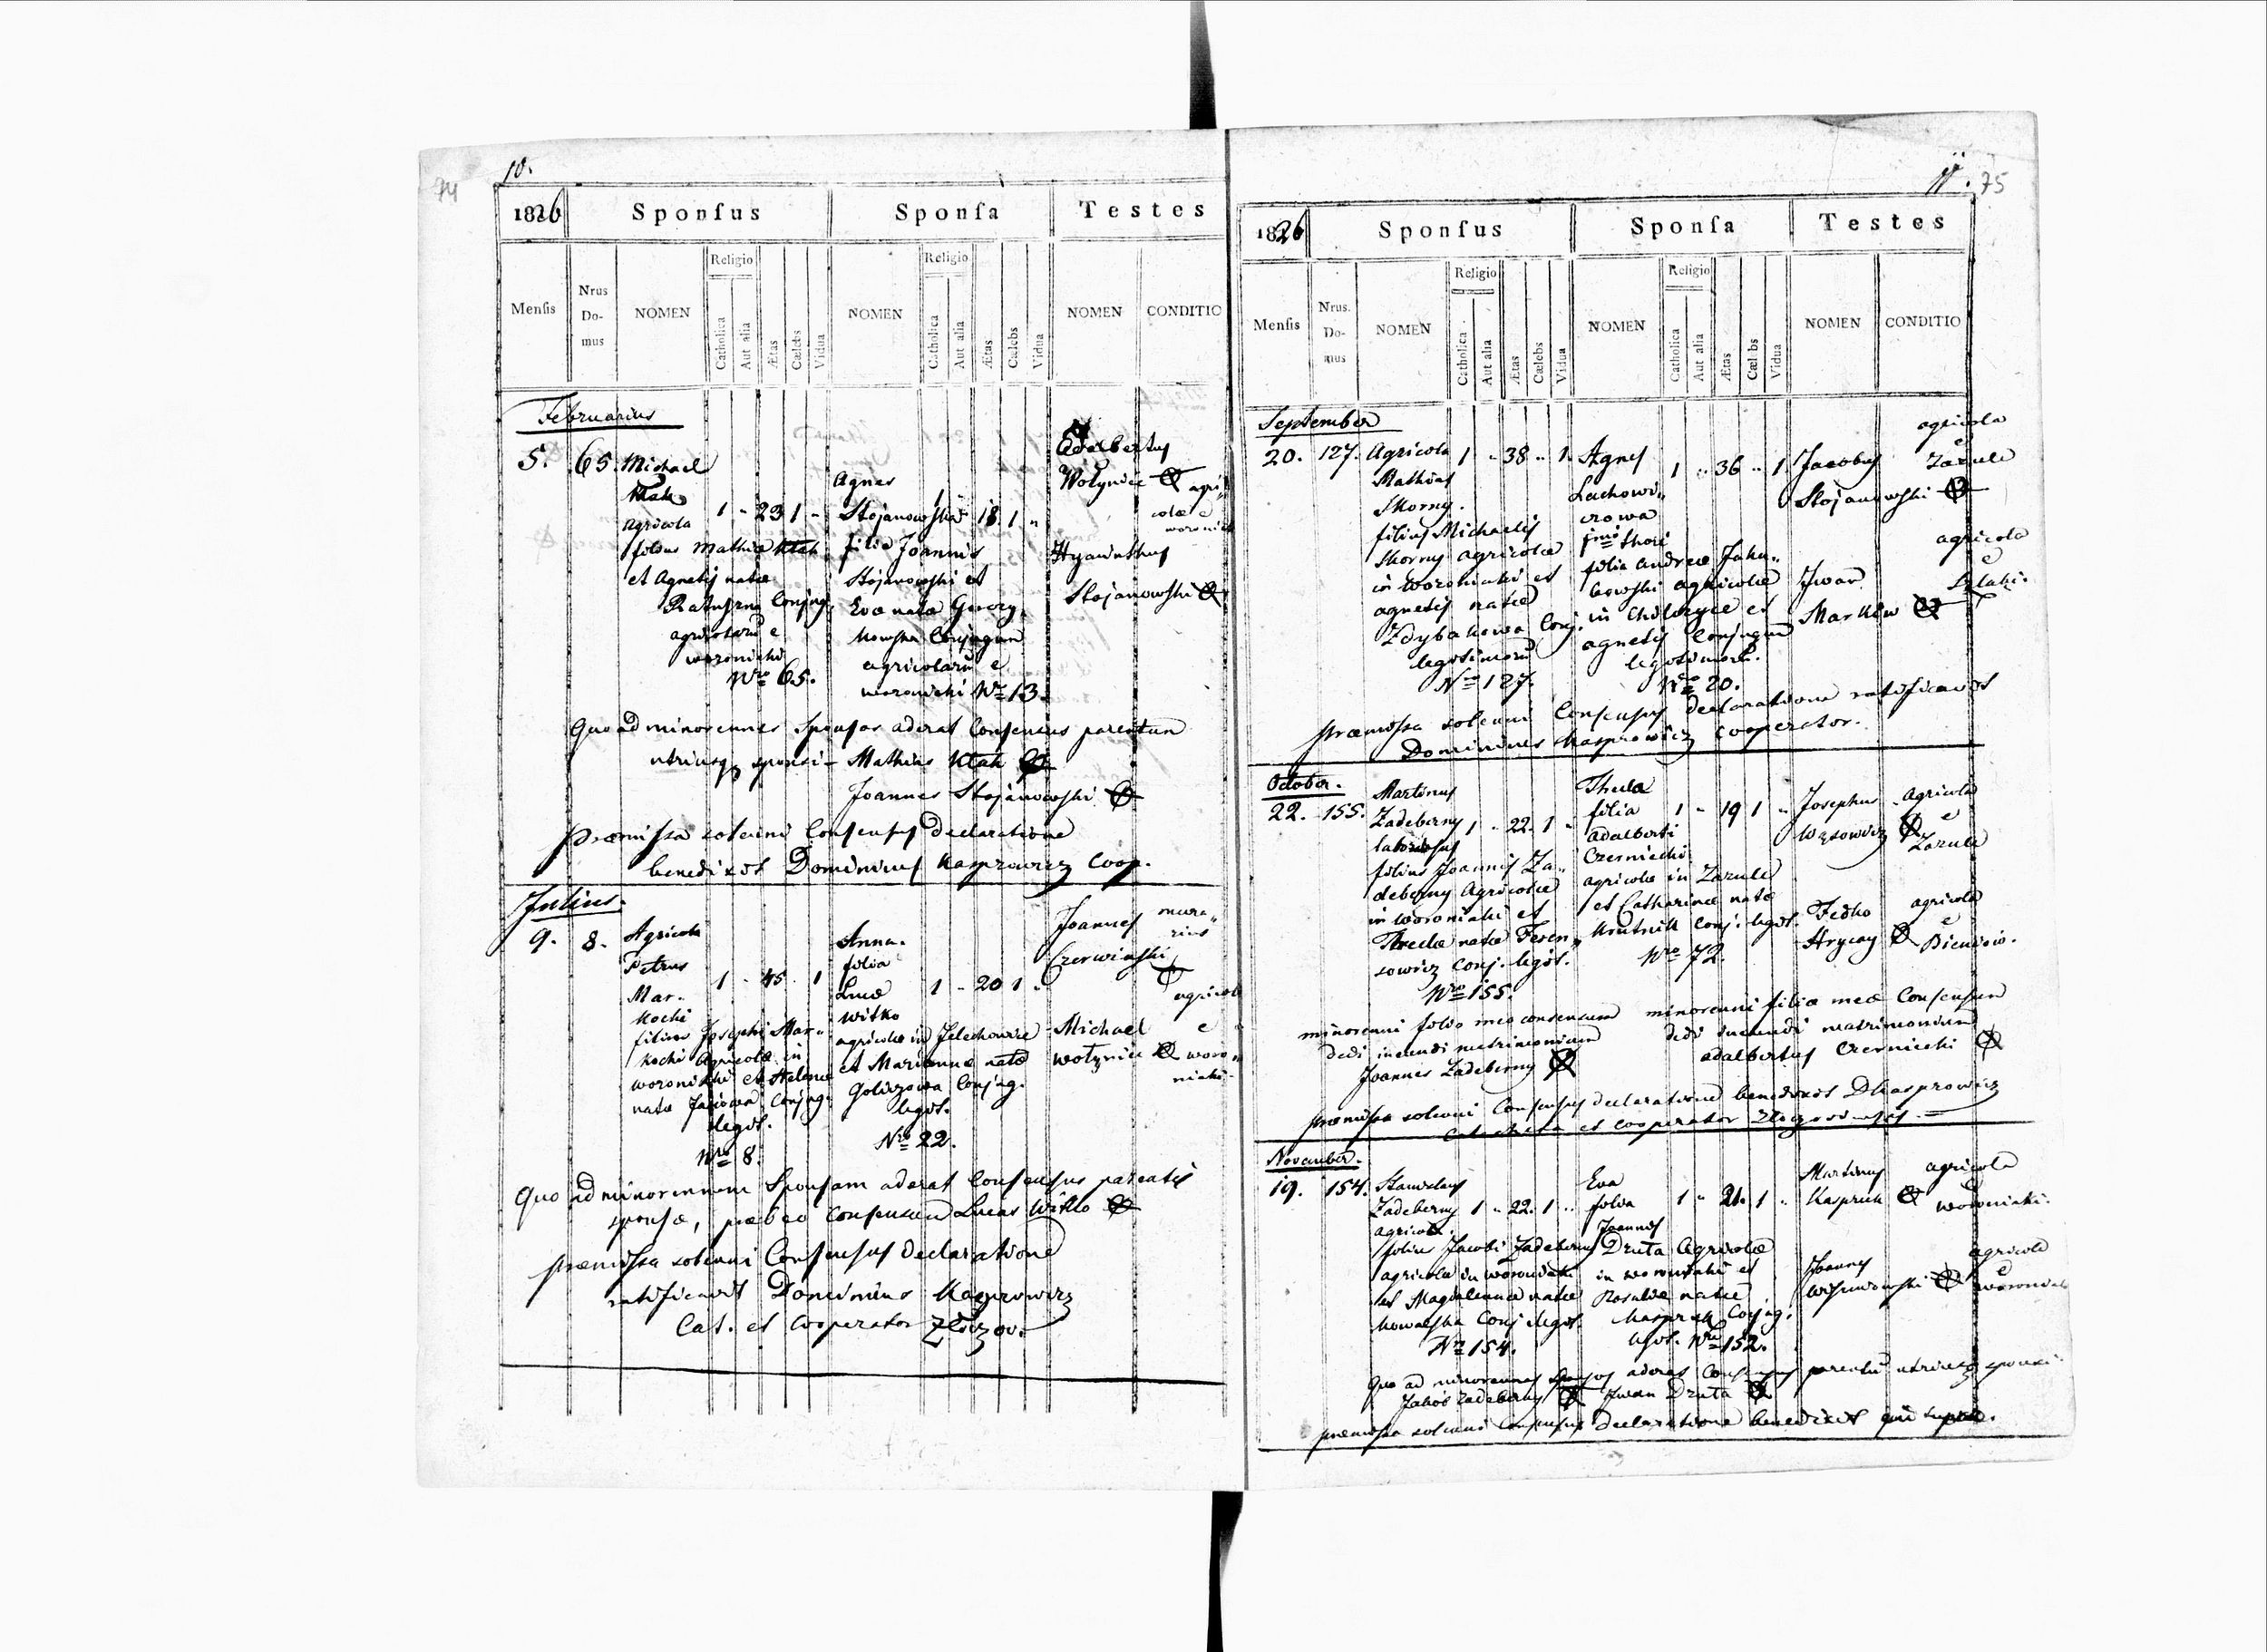 74
10.
1826 Sponsus Sponsa Testes
Mensis Nrus Domus NOMEN Religio Catholica Aut alia Ætas Cælebs Vidua NOMEN Religio Catholica Aut alia Ætas Cælebs Vidua NOMEN CONDITIO
Februarius
5. 65. Michael
Ktak
Agricola 1 - 23 1 -
filius Mathiæ Ktak
et Agnetis natæ
Conjug.
agricolarū e
woroniaki
Nro 65.
Agnes
Stojanowska 18 1 "
filia Joannis
Stojanowski et
Evæ natæ
Conjugum
agricolarū e
woroniaki Nro 13.
Adalbertus
Wołyniec agri"
colæ e
woroniak
Hyacinthus
Stojanowski
Quo ad minorennes Sponsos aderat Consensus parentum
utriusq sponsi - Mathias Ktak
Joannes Stojanowski
Præmissa solenni Consensus declaratione
benedixit Dominicus Kasprowicz Coop.
Julius.
9. 8. Agricola
Petrus
Mar-
kocki 1 - 45 . 1
filius Josephi Mar-
kocki Agricolæ in
woroniaki et Helenæ
natæ Conjug.
legit.
Nro 8.
Anna.
filia
Lucæ 1 - 20 1 "
Witko
agricolæ in Jelechowice
et Mariannæ natæ
Conjug.
legit.
Nro 22.
Joannes mura"
rius
Czerwinski
agricola
Michael e
Wołyniec woro"
niaki.
Quo ad minorennem Sponsam aderat Consensus parentis
sponsæ, præbeo consensum Lucas Witko
præmissa solenni Consensus declaratione
ratificavit Dominicus Kasprowicz
Cat. et Cooperator Złoczov.
11. 75
1826 Sponsus Sponsa Testes
Mensis Nrus. Domus NOMEN Religio Catholica Aut alia Ætas Cælebs Vidua NOMEN Religio Catholica Aut alia Ætas Cælebs Vidua NOMEN CONDITIO
September
20. 127. Agricola 1 " 38 " 1.
Mathias
Skorny.
filius Michaelis
Skorny agricolæ
in woroniaki et
agnetis natæ
Zdybakowa Conj.
legitimorū
Nro 127.
Agnes 1 " 36 " 1
Lachowi"
czowa
filia Andreæ Jaku"
bowski agricolæ
in et
agnetis Conjugum
legitimorū.
Nro 20.
agricola
e
Jacobus Zazule
Stojanowski
agricola
e
Iwan
Markiw
præmissa solenni Consensus declaratione ratificavit
Dominicus Kasprowicz cooperator.
October.
22. 155. Martinus
Zadeberny 1 " 22. 1 "
laboriosus
filius Joannis Za"
deberny Agricolæ
in woroniaki et
Theclæ natæ Feren"
sowicz Conj. legit.
Nro 155.
Thecla
filia 1 " 19 1 "
adalberti
Czerniecki
agricolæ in Zazule
et Catharinæ natæ
Krutnik Conj. legit.
Nro 72.
Josephus agricola
e
Wąsowicz Zazule
Fedko agricola
e
Hrycay
minorenni filio meo consensum
dedi ineundi matrimonium
Joannes Zadeberny
minorenni filiæ meæ Consensum
dedi ineundi matrimonium
adalbertus Czerniecki
præmissa solenni Consensus declaratione benedixit DKasprowicz
et cooperator
November.
19. 154. Stanislaus
Zadeberny 1 " 22. 1 "
agricola.
filius Jacobi Zadeberny
agricolæ in woroniaki
et Magdalenæ natæ
Kowalska Conj. legit.
Nro 154.
Eva
filia 1 " 21. 1 "
Joannis
Druta Agricolæ
in woroniaki et
Rosaliæ natæ
Kasprek Conjug.
legit. Nro 152.
Martinus agricola
Kasprek woroniaki.
Joannes agricola
e
Wiszniowski woroniak
Quo ad minorennes sponsos aderat Consensus parentū utriusq sponsi
Jakób Zadeberny Iwan Druta
præmissa solenni Consensus declaratione benedixit qui supra.